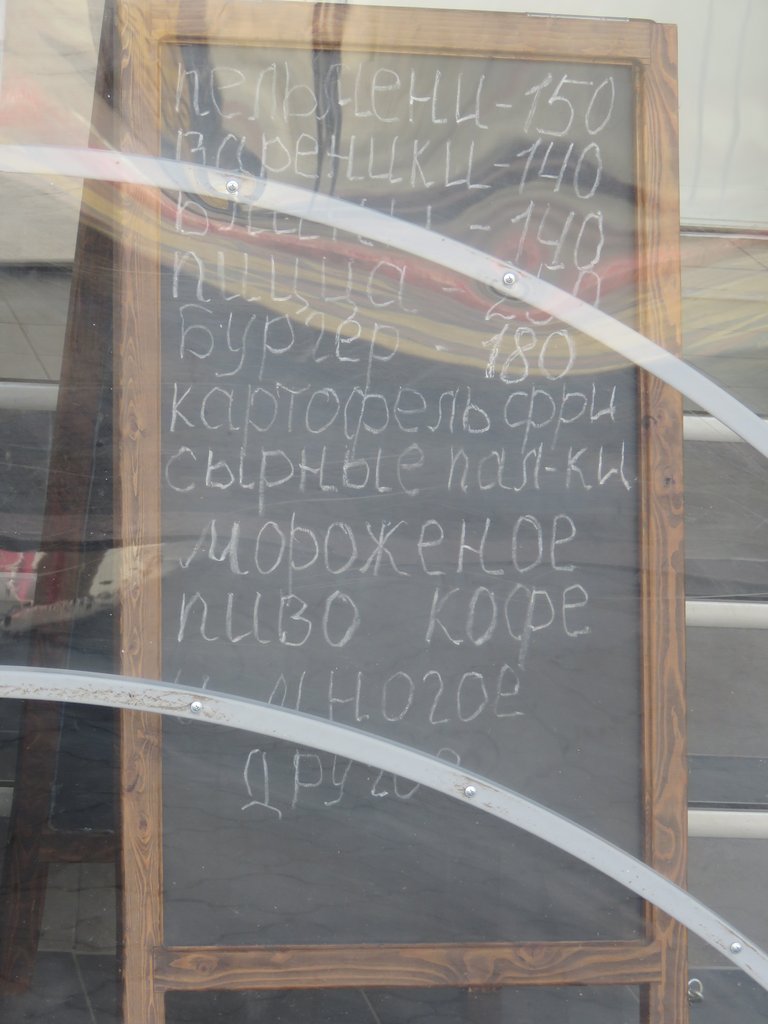 пельмени-150
вареники-140
блины - 140
пицца - 250
бургер - 180
картофель фри
сырные пал-ки
мороженое
пиво кофе
и многое
другое